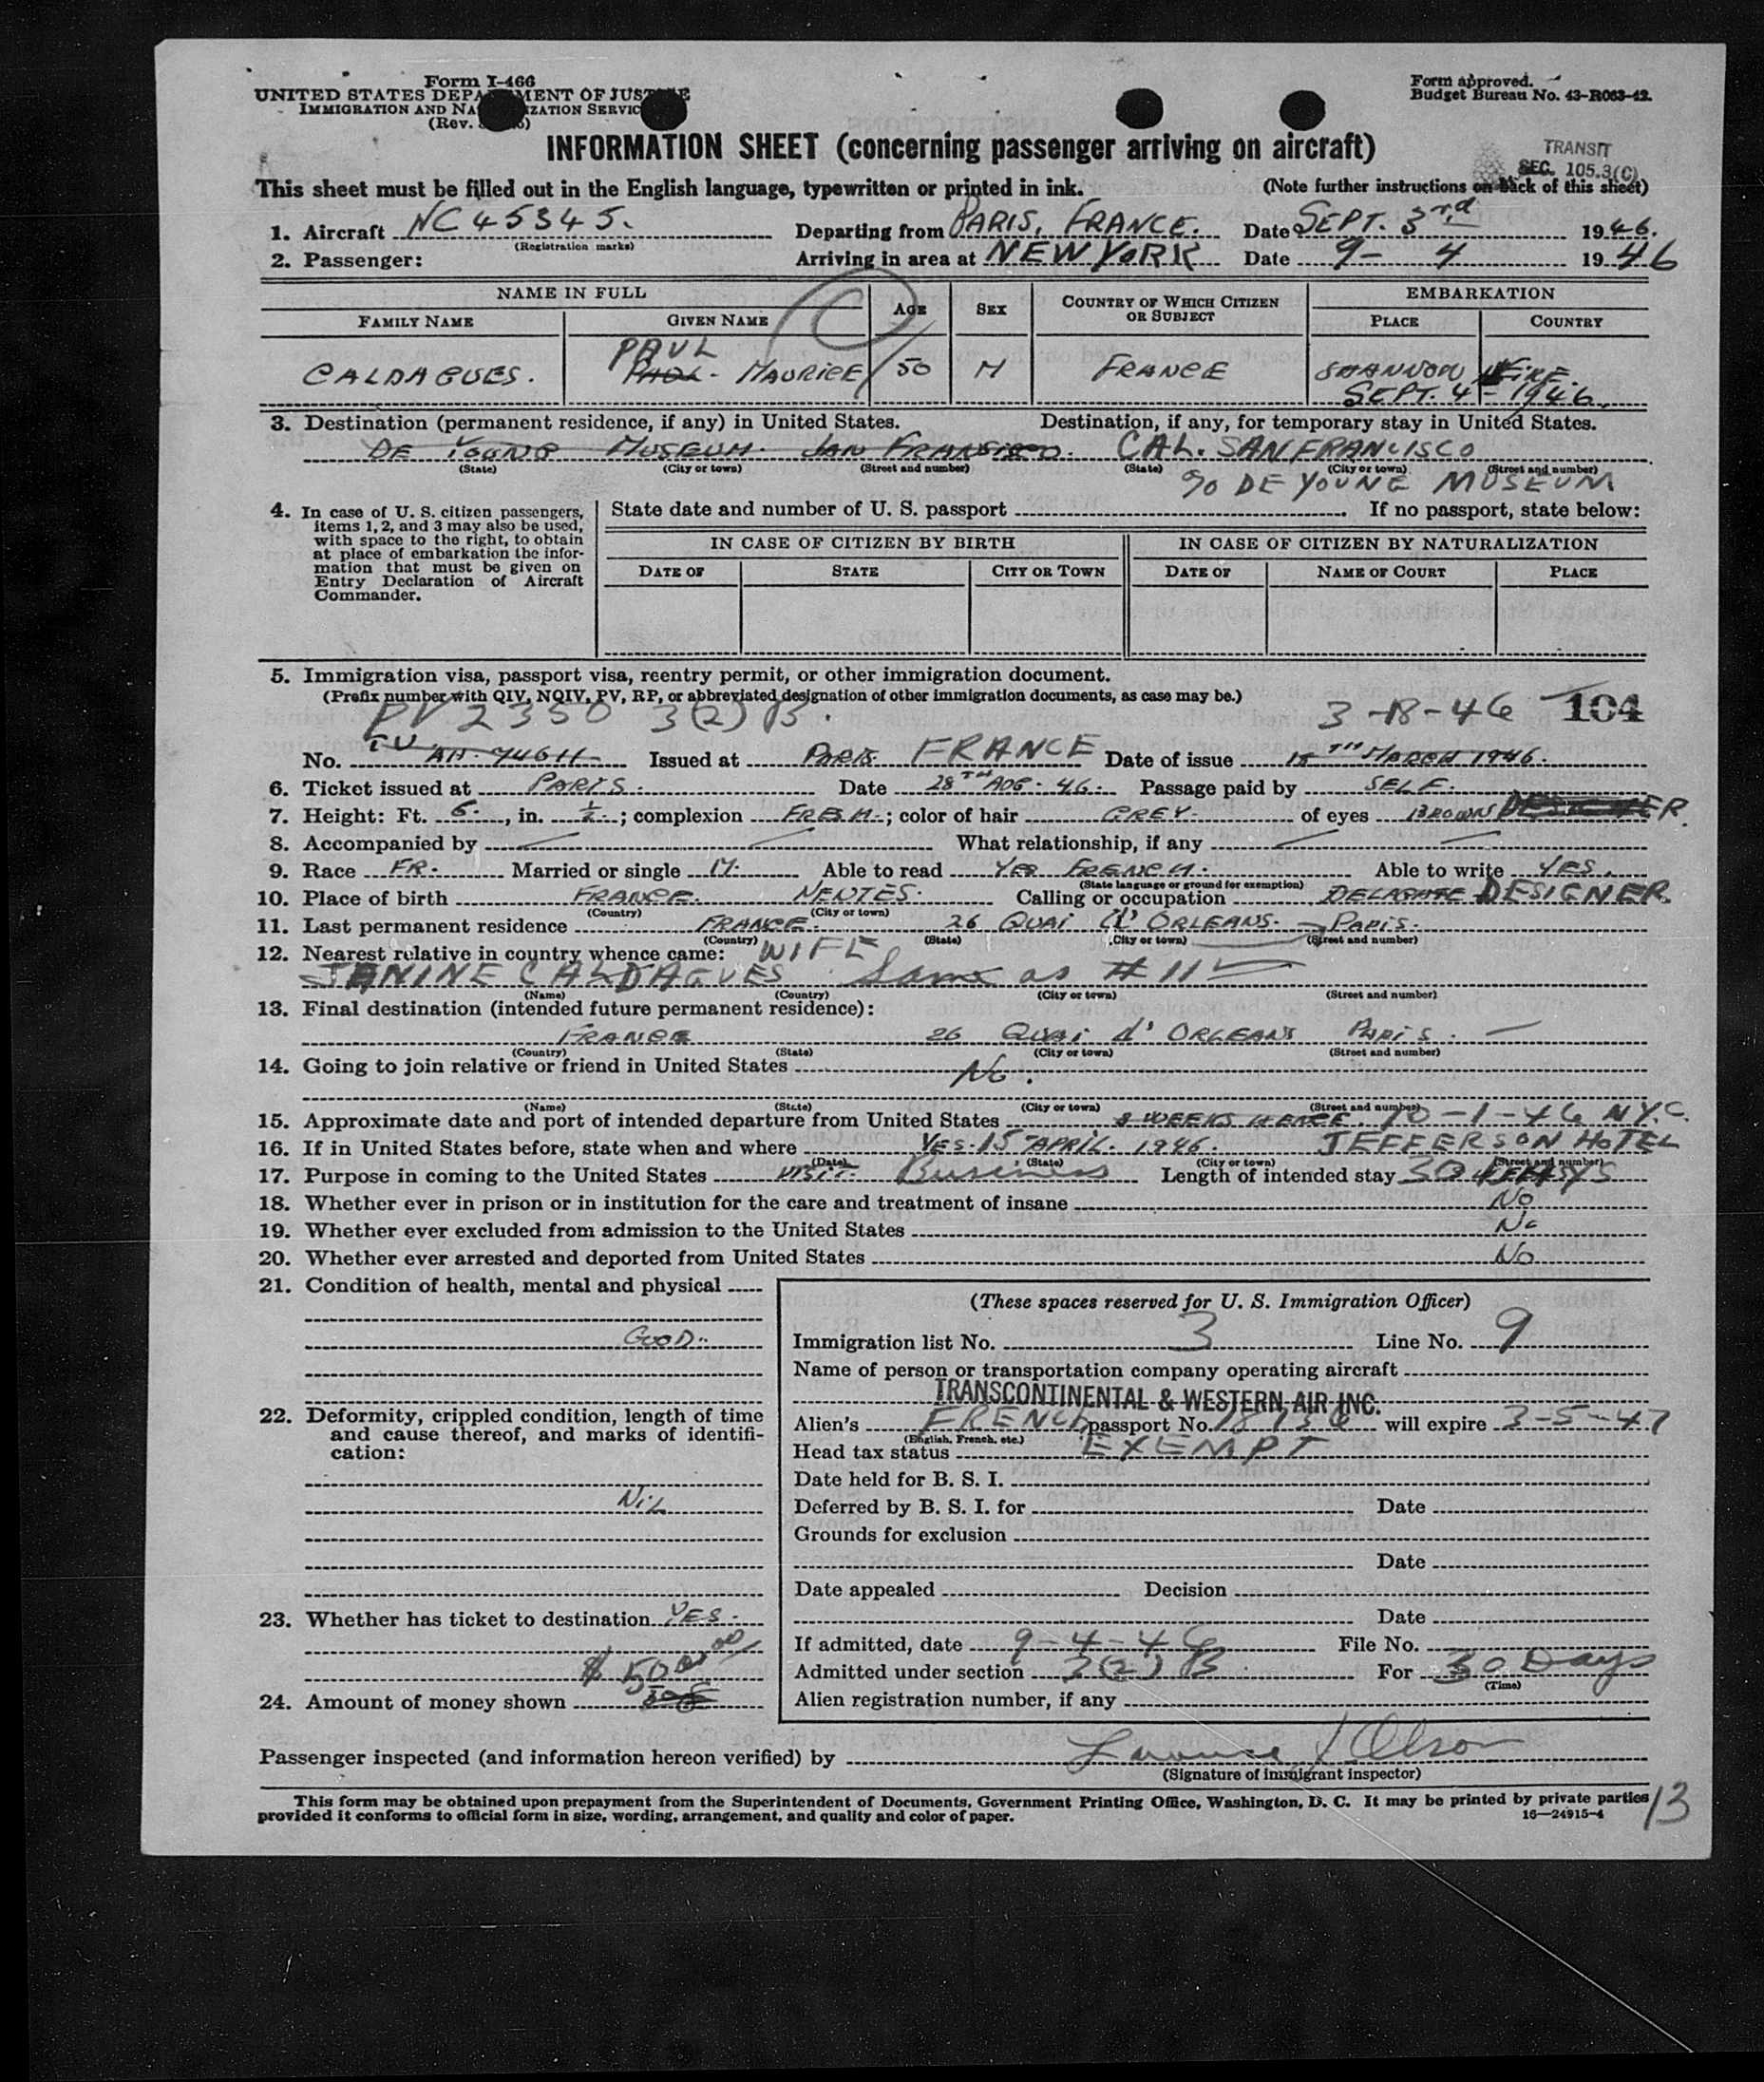 Form I-466
UNITED STATES DEPARTMENT OF JUSTICE
IMMIGRATION AND NATURALIZATION SERVICE
(Rev.
Form approved.
Budget Bureau No. 43-R063-42.
INFORMATION SHEET (concerning passenger arriving on aircraft)
TRANSIT
SEC. 105.3(C)
This sheet must be filled out in the English language, typewritten or printed in ink. (Note further instructions on back of this sheet)
1. Aircraft NC 45345. Departing from PARIS, FRANCE. Date SEPT. 3rd 1946.
(Registration marks)
2. Passenger: Arriving in area at NEW YORK Date 9-4 1946
NAME IN FULL AGE SEX COUNTRY OF WHICH CITIZEN OR SUBJECT EMBARKATION
FAMILY NAME GIVEN NAME PLACE COUNTRY
PAUL
CALDAGUES. PAUL- MAURICE 50 M FRANCE SHANNON EIRE.
SEPT. 4-1946.
3. Destination (permanent residence, if any) in United States. Destination, if any, for temporary stay in United States.
DE YOUNG MUSEUM. SAN FRANSISCO. CAL. SAN FRANCISCO
(State) (City or town) (Street and number) (State) (City or town) (Street and number)
c/o DE YOUNG MUSEUM
4. In case of U. S. citizen passengers, items 1, 2, and 3 may also be used, with space to the right, to obtain at place of embarkation the information that must be given on Entry Declaration of Aircraft Commander.
State date and number of U. S. passport . If no passport, state below:
IN CASE OF CITIZEN BY BIRTH IN CASE OF CITIZEN BY NATURALIZATION
DATE OF STATE CITY OR TOWN DATE OF NAME OF COURT PLACE
5. Immigration visa, passport visa, reentry permit, or other immigration document.
(Prefix number with QIV, NQIV, PV, RP, or abbreviated designation of other immigration documents, as case may be.)
PV 2350 3(2) B. 3-18-46 104
No. Issued at PARIS FRANCE Date of issue MARCH 1946.
6. Ticket issued at PARIS. Date 28TH AUG. 46. Passage paid by SELF.
7. Height: Ft. 6., in. ½.; complexion FRESH.; color of hair GREY. of eyes BROWN
8. Accompanied by What relationship, if any
9. Race FR. Married or single M. Able to read YES FRENCH. Able to write YES.
(State language or ground for exemption)
10. Place of birth FRANCE. NENTES. Calling or occupation DELAGATE DESIGNER
(Country) (City or town)
11. Last permanent residence FRANCE. 26 QUAI D'ORLEANS. PARIS.
(Country) (State) (City or town) (Street and number)
12. Nearest relative in country whence came: WIFE
JANINE CALDAGUES Same as #11
(Name) (Country) (City or town) (Street and number)
13. Final destination (intended future permanent residence):
FRANCE 26 QUAI d'ORLEANS PARIS.
(Country) (State) (City or town) (Street and number)
14. Going to join relative or friend in United States No.
(Name) (State) (City or town) (Street and number)
15. Approximate date and port of intended departure from United States WEEKS HENCE. 10-1-46 N.Y.C.
16. If in United States before, state when and where YES. 15 APRIL. 1946. JEFFERSON HOTEL
(Date) (State) (City or town) (Street and number)
17. Purpose in coming to the United States VISIT. Business Length of intended stay 30 DAYS
18. Whether ever in prison or in institution for the care and treatment of insane No
19. Whether ever excluded from admission to the United States No
20. Whether ever arrested and deported from United States No
21. Condition of health, mental and physical
GOOD.
22. Deformity, crippled condition, length of time and cause thereof, and marks of identification:
NiL
23. Whether has ticket to destination YES.
$ 500
24. Amount of money shown
(These spaces reserved for U. S. Immigration Officer)
Immigration list No. 3 Line No. 9
Name of person or transportation company operating aircraft
TRANSCONTINENTAL & WESTERN AIR, INC.
Alien's FRENCH passport No. 18736 will expire 3-5-47
(English, French, etc.)
Head tax status EXEMPT
Date held for B. S. I.
Deferred by B. S. I. for Date
Grounds for exclusion
Date
Date appealed Decision
Date
If admitted, date 9-4-46 File No.
Admitted under section 3(2) B For 30 Days
(Time)
Alien registration number, if any
Passenger inspected (and information hereon verified) by Olson
(Signature of immigrant inspector)
This form may be obtained upon prepayment from the Superintendent of Documents, Government Printing Office, Washington, D. C. It may be printed by private parties
provided it conforms to official form in size, wording, arrangement, and quality and color of paper. 16—24915-4
13